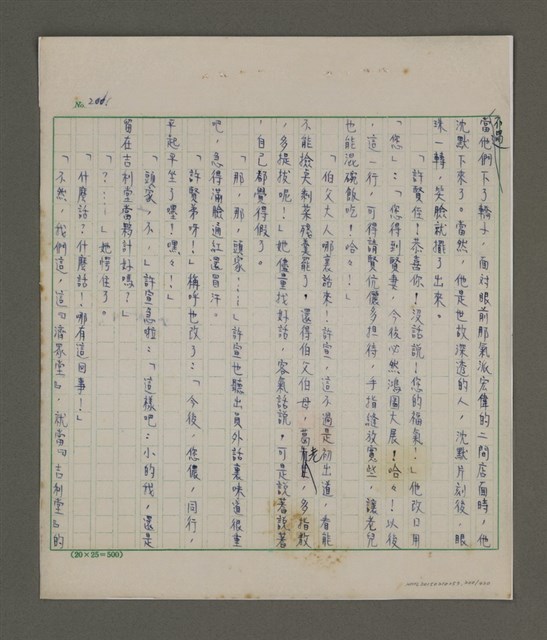 No. 200
不過，當他們下了轎子，面對眼前那氣派宏偉的二間店面時，他
沈默下來了。當然，他是世故深透的人，沈默片刻後，眼
珠一轉，笑臉就擺了出來。
「許賢侄！恭喜你！沒話說！您的福氣！」他改口用
「您」：「您得到賢妻，今後必然鴻圖大展！哈々！以後
，這一行，可得請賢伉儷多担待，手指縫放寬些，讓老兒
也能混碗飯吃！哈々！」
「伯父大人哪裏話來！許宣，這不過是初出道，看能
不能撿吳剩菜殘羹罷了。還得伯父伯母，葛老，多指教
，多提拔呢！」她儘量找好話，客氣話說，可是說著說著
，自己都覺得假了。
「那，那，頭家……」許宣也聽出員外話裏味道很重
吧，急得滿臉通紅還冒汗。
「許賢弟呀！」稱呼也改了：「今後，您儂，同行，
平起平坐了嘿！嘿々！」
「頭家，不，」許宣急啦：「這樣吧：小的我，還是
留在吉利堂當夥計好嗎？」
「？……」她愕住了。
「什麼話？什麼話！哪有這回事！」
「不然，我們這，這『濟眾堂』，就當『吉利堂』的
(20×25=500)